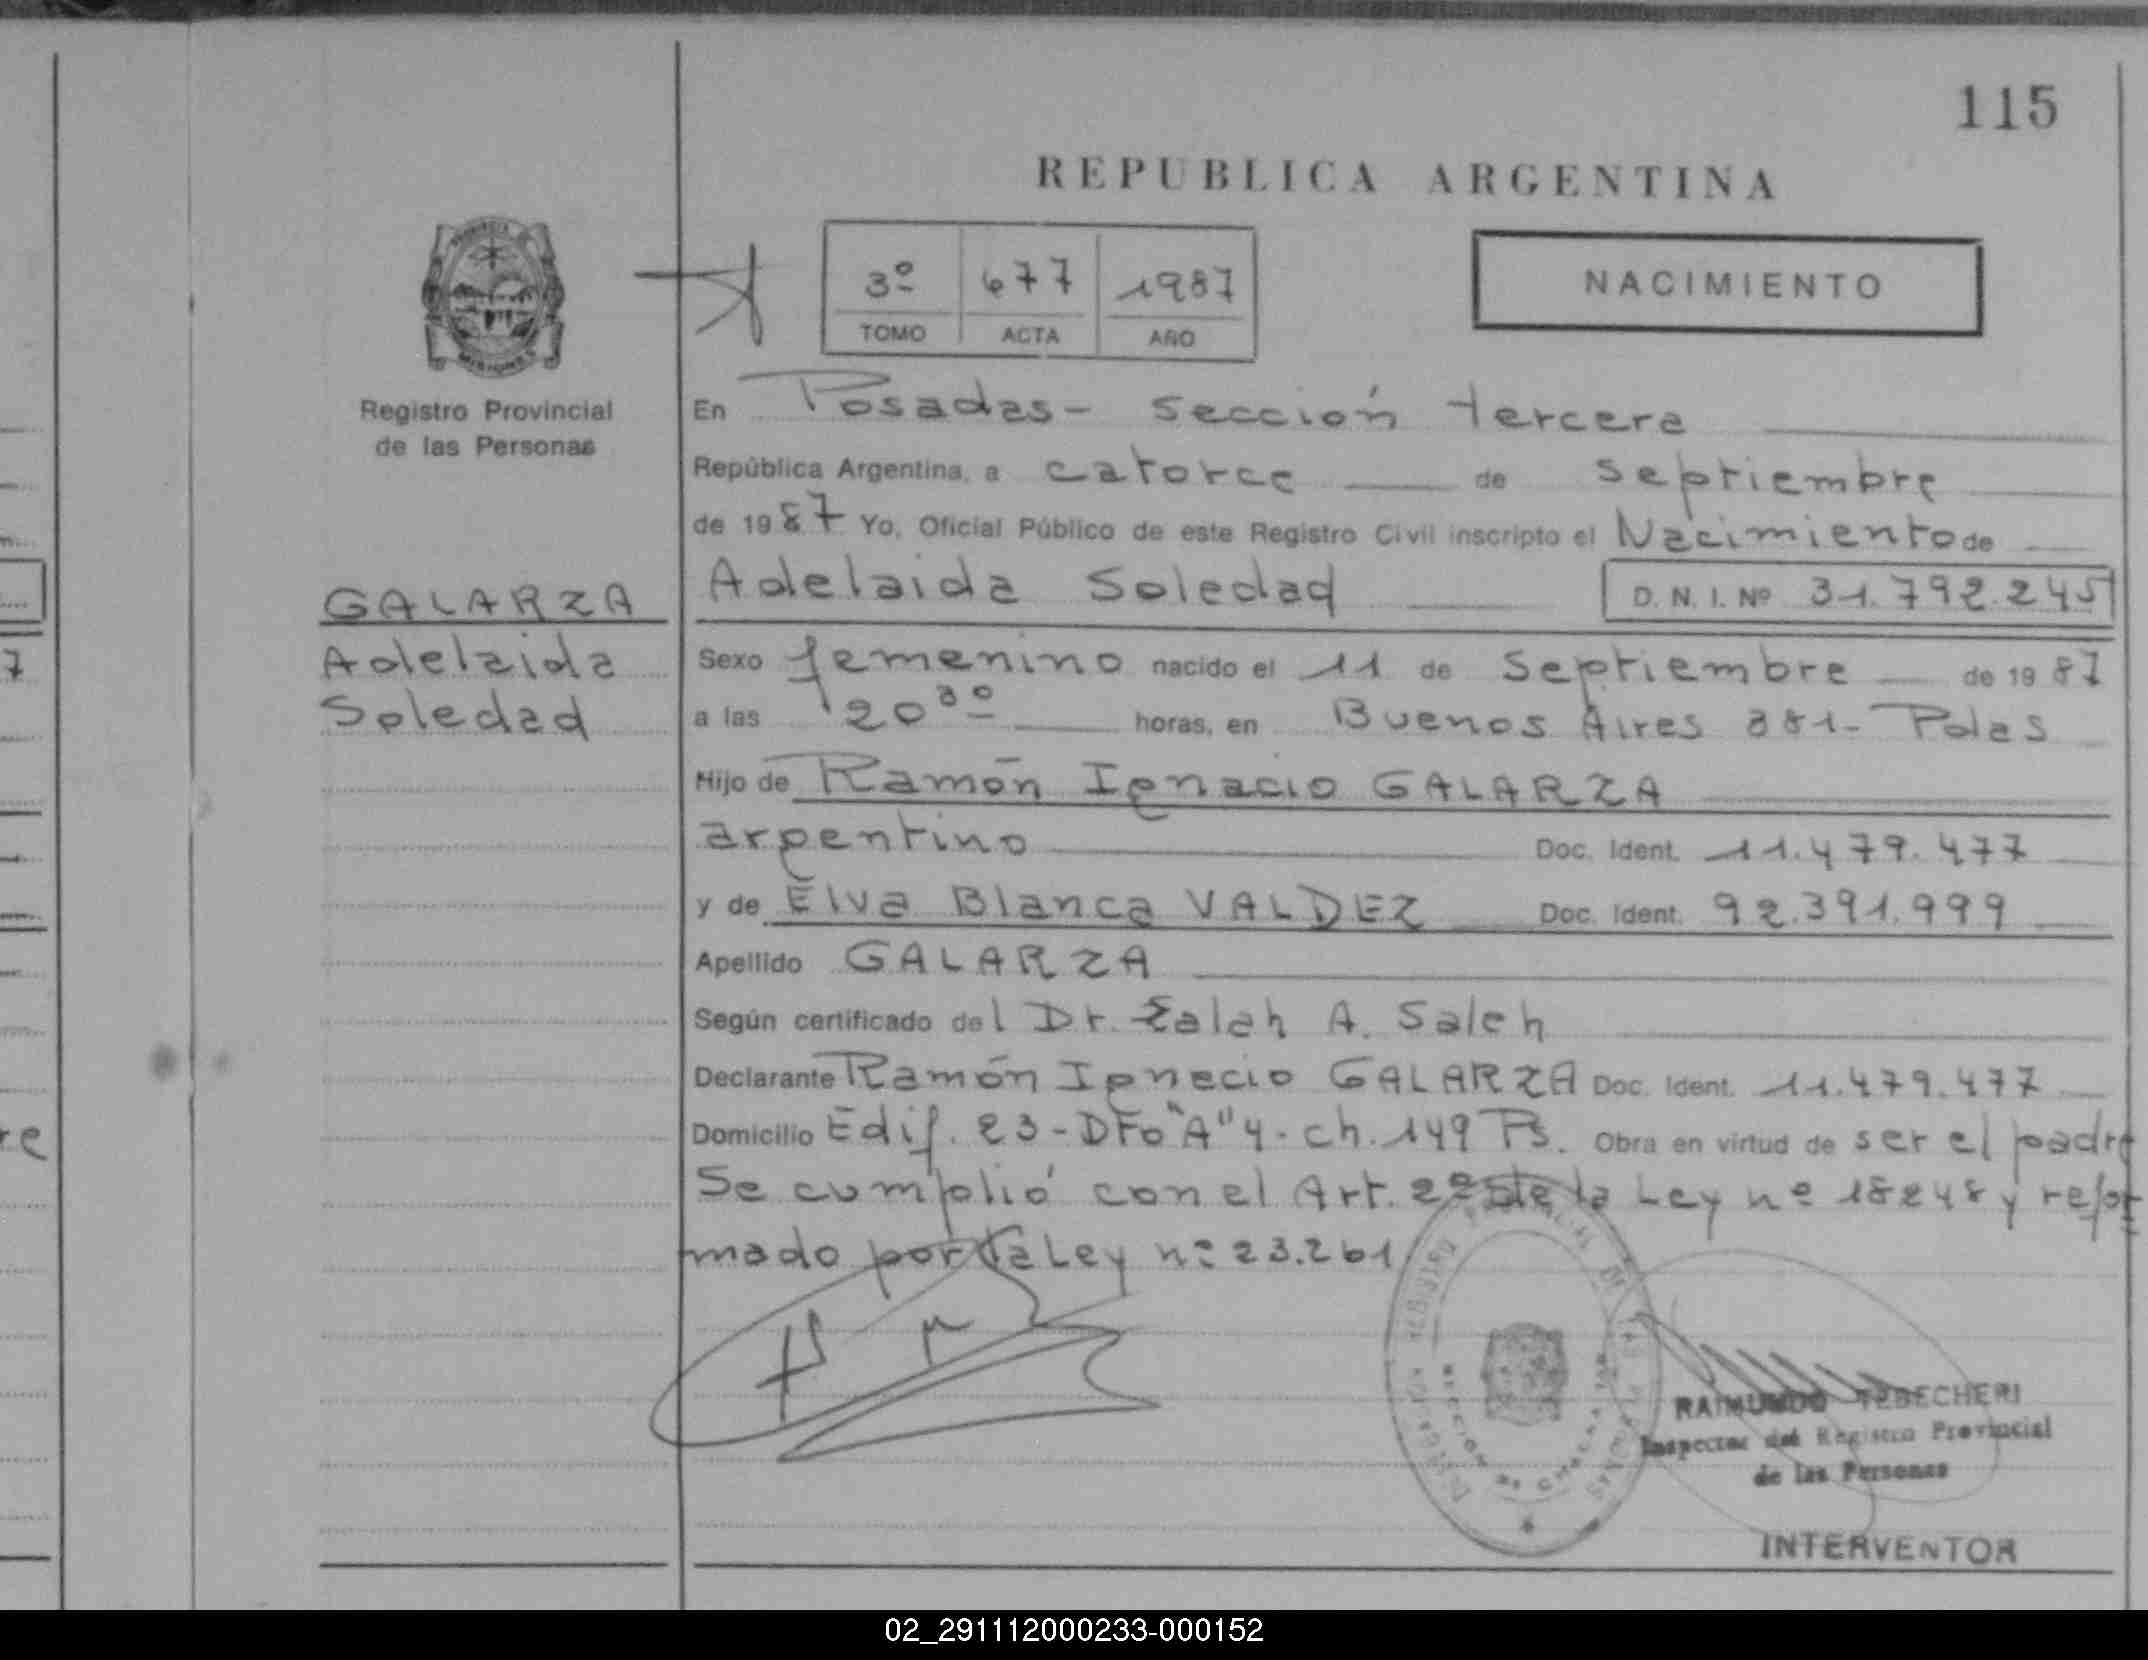 115
REPUBLICA ARGENTINA
3º 677 1987
TOMO ACTA AÑO
NACIMIENTO
Registro Provincial
de las Personas
GALARZA
Adelaida
Soledad
En Posadas- sección tercera
República Argentina, a catorce de septiembre
de 1987 Yo, Oficial Público de este Registro Civil inscripto el Nacimiento de
Adelaida Soledad D. N. I. Nº 31.792.245
Sexo femenino nacido el 11 de Septiembre de 1987
a las 20 30 horas, en Buenos Aires 381- Pdas
Hijo de Ramón Ignacio GALARZA
argentino Doc. Ident. 11.479.477
y de Elva Blanca VALDEZ Doc. Ident. 92.391.999
Apellido GALARZA
Según certificado del Dr. Salah A. Saleh
Declarante Ramón Ignacio GALARZA Doc. Ident. 11.479.477
Domicilio Edif. 23 - DTo "A" 4 - ch. 149 Ps. Obra en virtud de ser el padre
Se cumplió con el Art. 2º de la Ley nº 18248 y refor
mado por la Ley nº 23.261
RAIMUNDO TEBECHERI
Inspector del Registro Provincial
de las Personas
INTERVENTOR
02_291112000233-000152